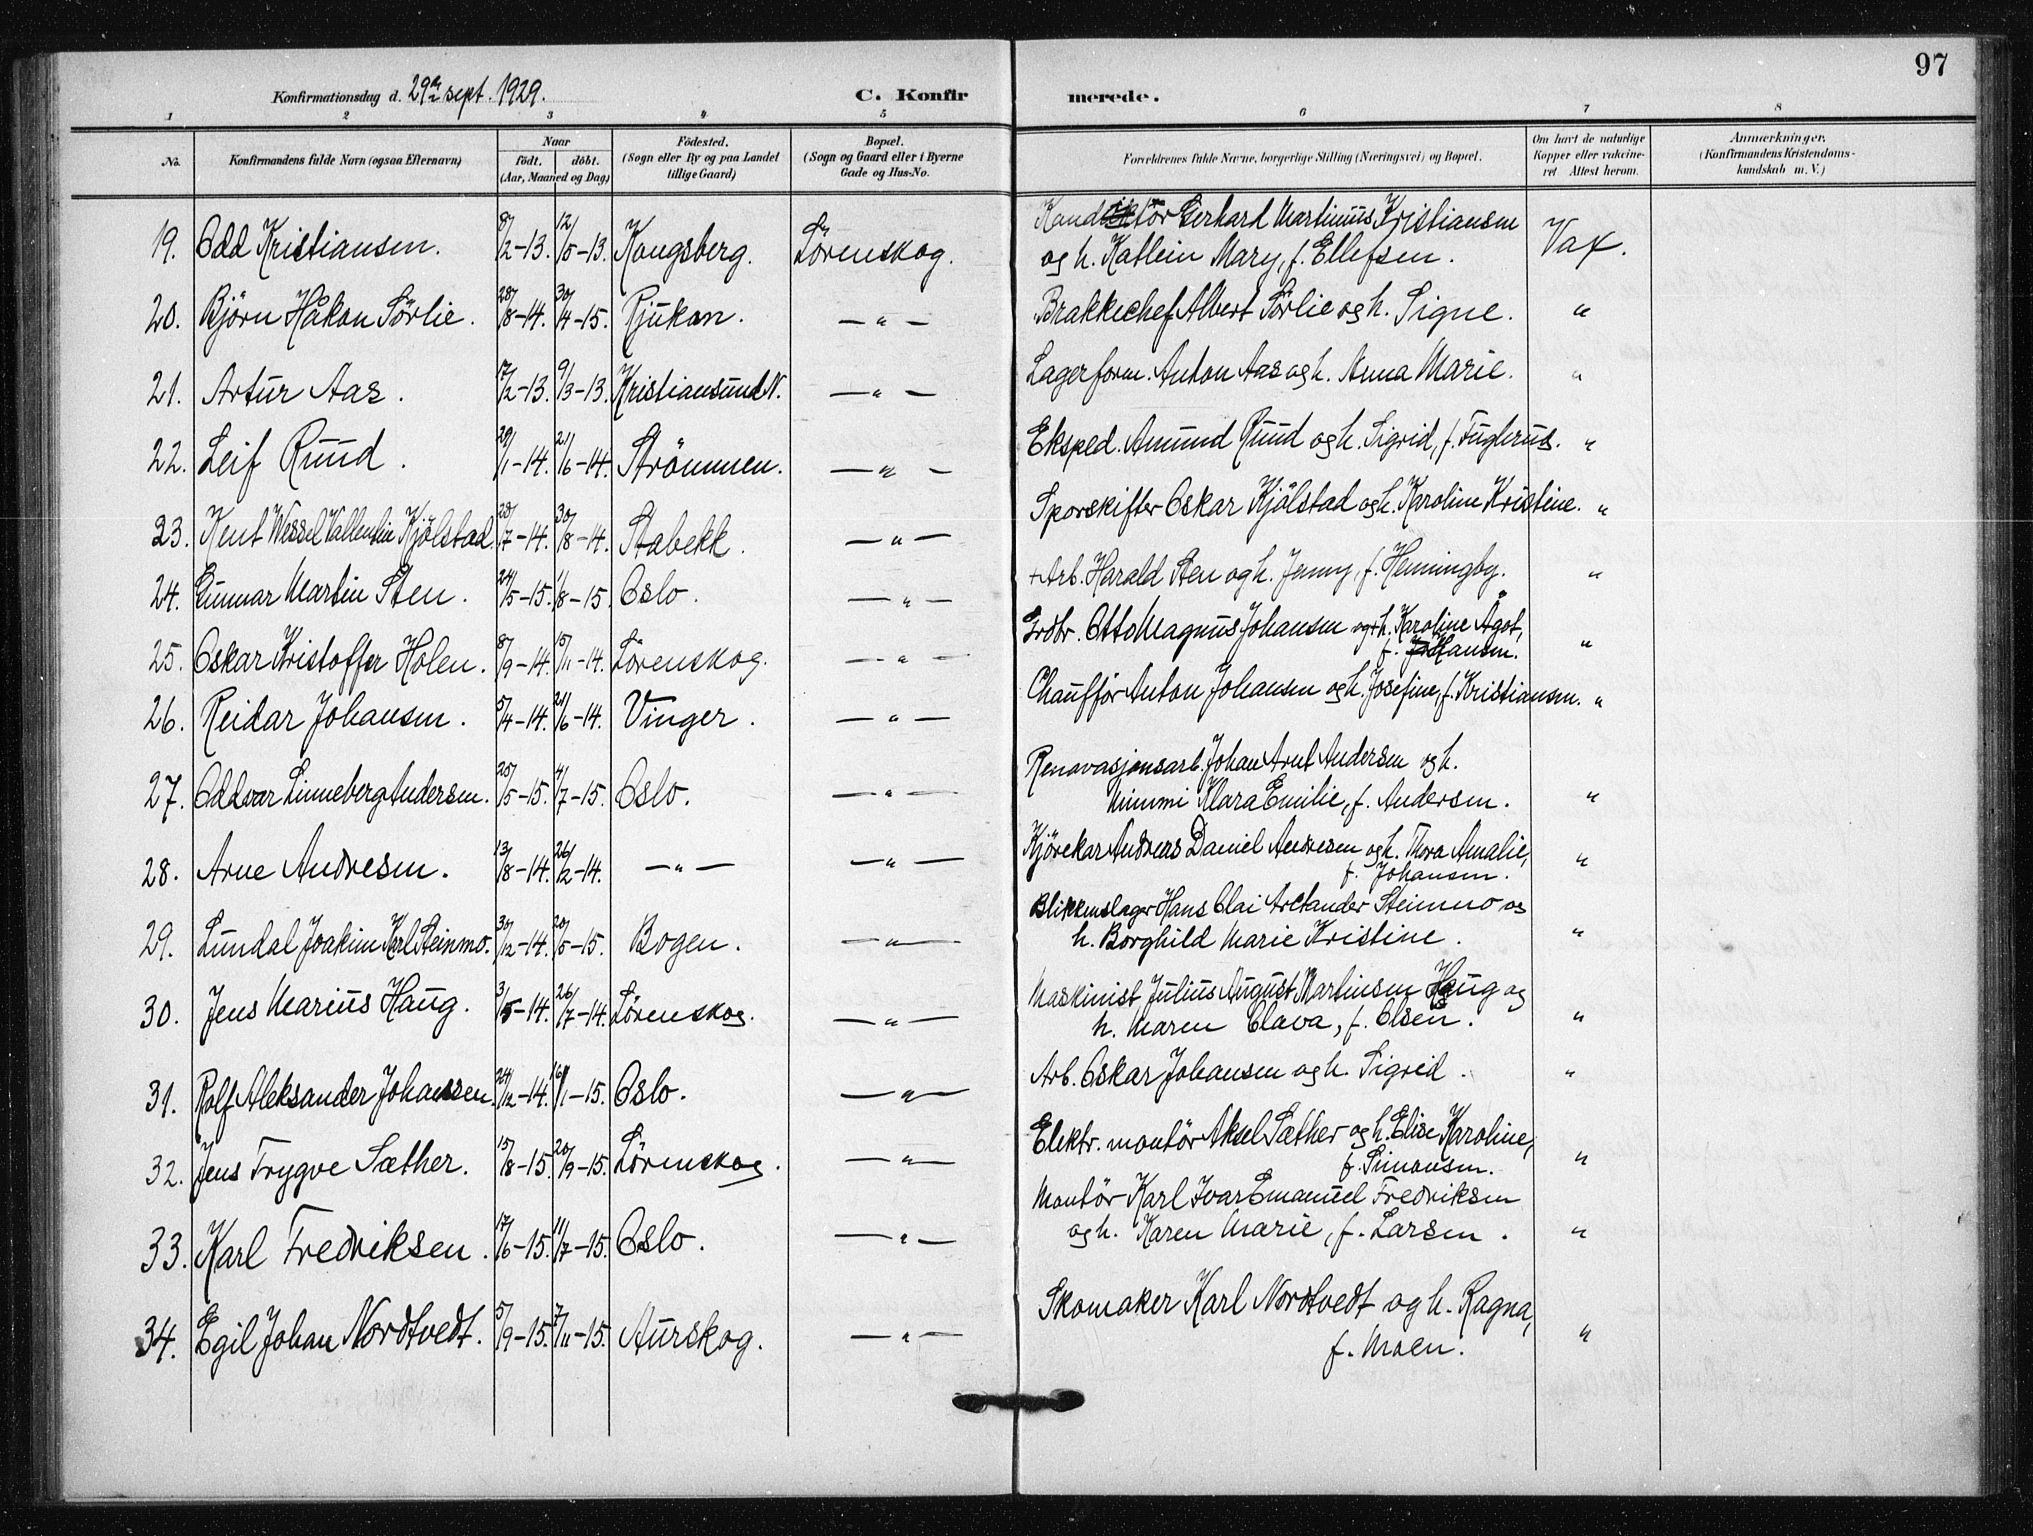 97
Konfirmationsdag d. 29de sept. 1929. C. Konfir merede.
1 2 3 4 5 6 7 8
No. Konfirmandens fulde Navn (ogsaa Efternavn) Naar födt. döbt. (Aar, Maaned og Dag) Födested. (Sogn eller By og paa Landet tillige Gaard) Bopæl. (Sogn og Gaard eller i Byerne Gade og Hus-No. Forældrenes fulde Navne, borgerlige Stilling (Næringsvei) og Bopæl. Om havt de naturlige Kopper eller vakcineret Attest herom. Anmærkninger. (Konfirmandens Kristendomskundskab m. V.)
19. Odd Kristiansen. 8/2-13. 12/5-13. Kongsberg. Lörenskog. Konduktör Gerhard Martinius Kristiansen
og h. Katlein Mary, f. Ellefsen. Vax.
20. Björn Håkon Sörlie. 28/8-14. 30/4-15. Rjukan. — " — Brakkechef Albert Sörlie og h. Signe. "
21. Artur Aas. 17/2-13. 9/3-13. Kristiansund N. — " — Lagerform. Anton Aas og h. Anna Marie. "
22. Leif Ruud. 29/1-14. 21/6-14. Strömmen. — " — Eksped. Amund Ruud og h. Sigrid, f. Fuglerud. "
23. Kent Wessel Vallentin Kjölstad. 28/7-14. 30/8-14. Stabekk. — " — Sporskifter Oskar Kjölstad og h. Karoline Kristine. "
24. Gunnar Martin Sten. 24/5-15. 1/8-15. Oslo. — " — +Arb. Harald Sten og h. Jenny, f. Henningby. "
25. Oskar Kristoffer Holen. 8/9-14. 15/11-14. Lörenskog. — " — Grdbr. Otto Magnus Johansen og h. Karoline Ågot,
f. Hansen. "
26. Reidar Johansen. 5/4-14. 21/6-14. Vinger. — " — Chaufför Anton Johansen og h. Josefine, f. Kristiansen. "
27. Oddvar Linneberg Andersen. 25/5-15. 4/7-15. Oslo. — " — Renovasjonsarb. Johan Arnt Andersen og h.
Mimmi Klara Emilie, f. Andersen. "
28. Arne Andresen. 13/8-14. 26/12-14. — " — — " — Kjörekar Andreas Daniel Andresen og h. Thora Amalie,
f. Johansen. "
29. Lundal Joakim Karl Steinmo. 30/12-14. 20/5-15. Bogen. — " — Blikkenslager Hans Olai Arctander Steinmo og
h. Borghild Marie Kristine. "
30. Jens Marius Haug. 3/5-14. 26/7-14. Lörenskog. — " — Maskinist Julius August Martinsen Haug og
h. Maren Olava, f. Olsen. "
31. Rolf Aleksander Johanssen. 24/12-14. 16/1-15. Oslo. — " — Arb. Oskar Johansen og h. Sigrid. "
32. Jens Trygve Sæther. 15/8-15. 20/9-15. Lörenskog. — " — Elektr. montör Aksel Sæther og h. Elise Karoline,
f. Simonsen. "
33. Karl Fredriksen. 17/6-15. 11/7-15. Oslo. — " — Montör Karl Ivar Emanuel Fredriksen
og h. Karen Marie, f. Larsen. "
34. Egil Johan Nordtvedt. 5/9-15. 7/11-15. Aurskog. — " — Skomaker Karl Nordtvedt og h. Ragna,
f. Moen. "